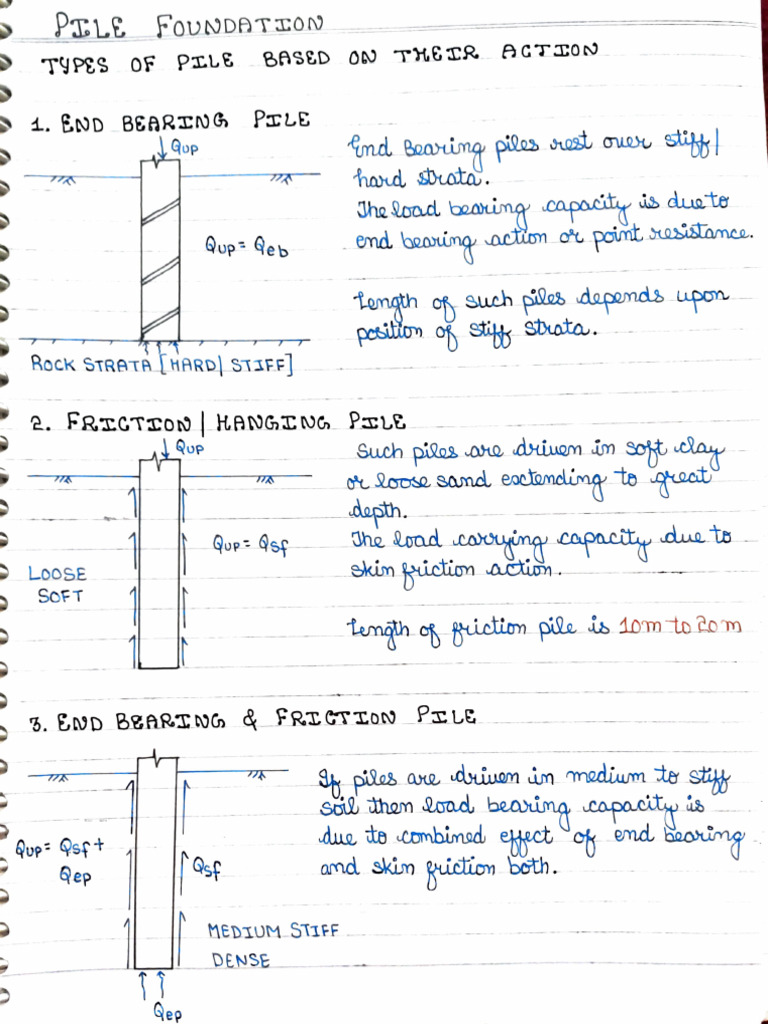 PILE FOUNDATION
TYPES OF PILE BASED ON THEIR ACTION
1. END BEARING PILE
QUP
QUP = Qeb
ROCK STRATA [HARD/STIFF]
End Bearing piles rest over stiff/
hard strata.
The load bearing capacity is due to
end bearing action or point resistance.
Length of such piles depends upon
position of stiff strata.
2. FRICTION/HANGING PILE
QUP
QUP = Qsf
LOOSE
SOFT
Such piles are driven in soft clay
or loose sand extending to great
depth.
The load carrying capacity due to
skin friction action.
Length of friction pile is 10m to 20m
3. END BEARING & FRICTION PILE
QUP = Qsf +
Qep
Qsf
MEDIUM STIFF
DENSE
Qep
If piles are driven in medium to stiff
soil then load bearing capacity is
due to combined effect of end bearing
and skin friction both.